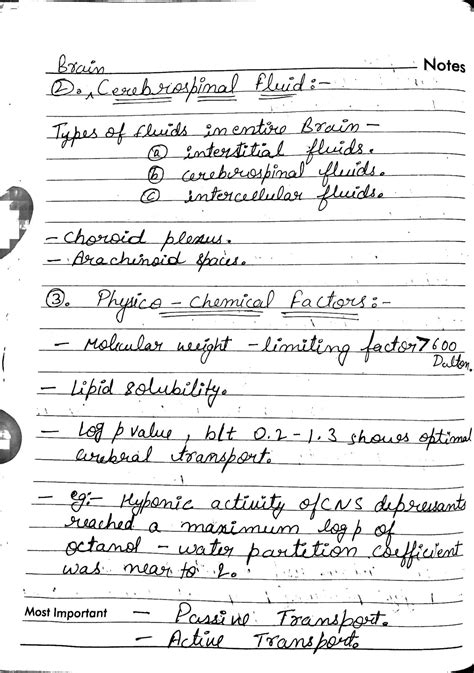 Notes
Brain
②. ^ Cerebrospinal fluid :-
Types of fluids in entire Brain -
ⓐ interstitial fluids.
ⓑ cerebrospinal fluids.
ⓒ intercellular fluids.
- Choroid plexus.
- Arachinoid spaies.
③. Physico - Chemical Factors :-
- Molcular weight - limiting factor > 600
Dalton.
- Lipid solubility.
- Log p value, b/t 0.2 - 1.3 shows optimal
cerebral transport.
- eg:- Hyponic activity of CNS depressants
reached a maximum log p of
octanol - water partition coefficient
was near to 2.
Most Important - Passive Transport.
- Active Transport.